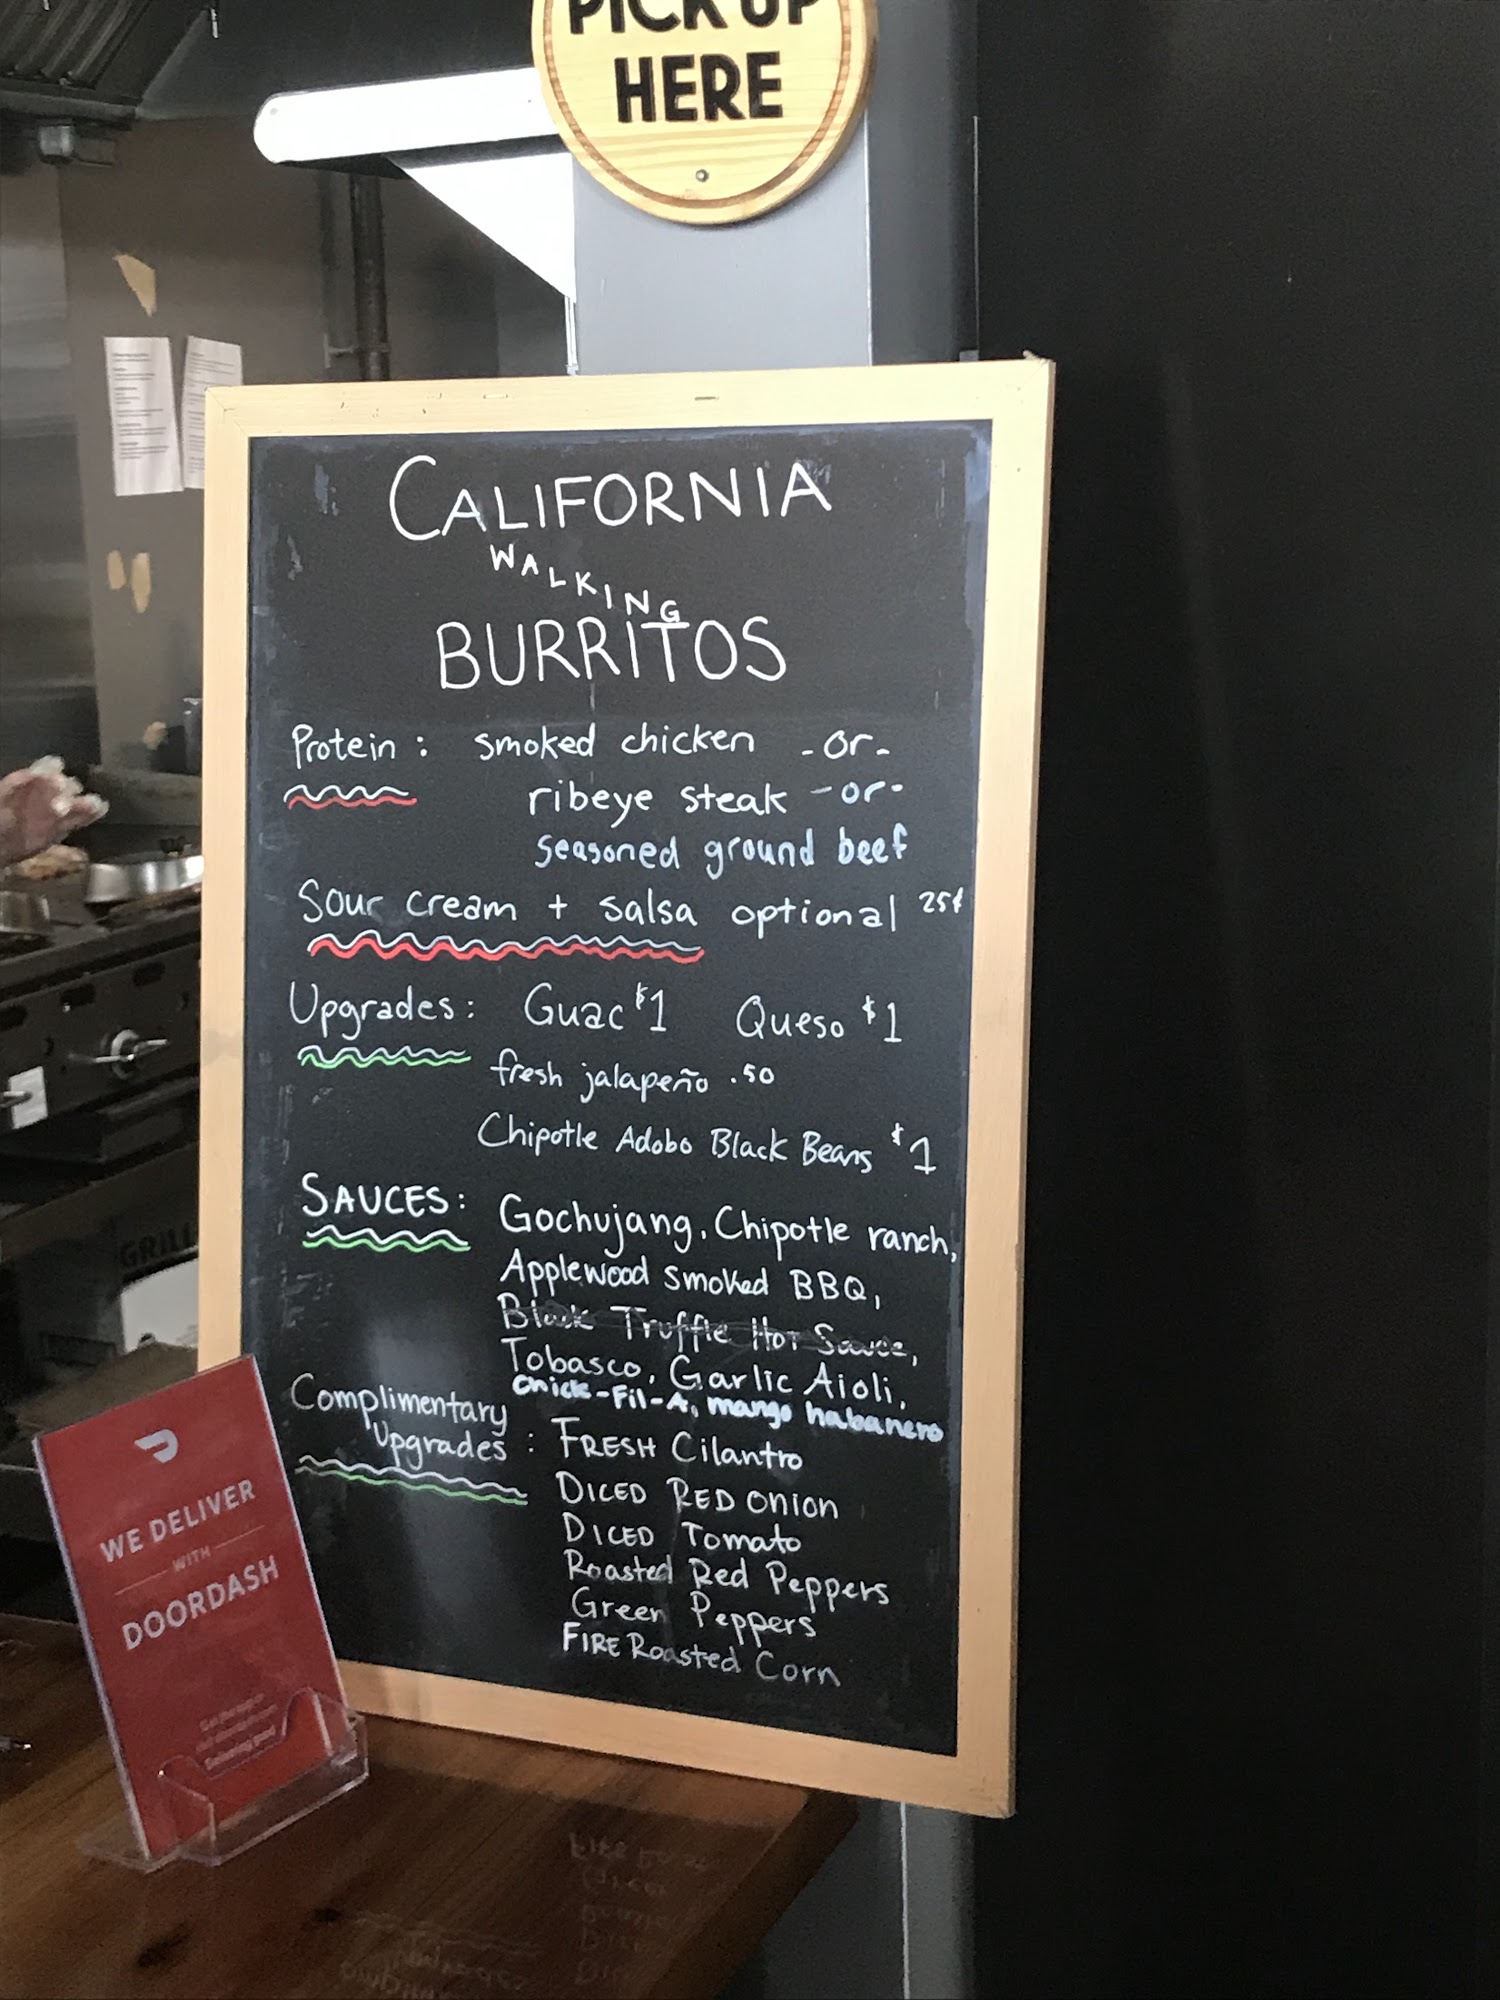 PICK UP
HERE
CALIFORNIA
WALKING
BURRITOS
Protein: smoked chicken -or-
ribeye steak -or-
seasoned ground beef
Sour cream + salsa optional 25¢
Upgrades: Guac $1 Queso $1
fresh jalapeño .50
Chipotle Adobo Black Beans $1
SAUCES: Gochujang, Chipotle ranch,
Applewood smoked BBQ,
Black Truffle Hot Sauce,
Tobasco, Garlic Aioli,
chick-Fil-A, mango habanero
Complimentary
Upgrades: FRESH Cilantro
DICED RED ONION
DICED Tomato
Roasted Red Peppers
Green Peppers
FIRE Roasted Corn
WE DELIVER
WITH
DOORDASH
GRILL